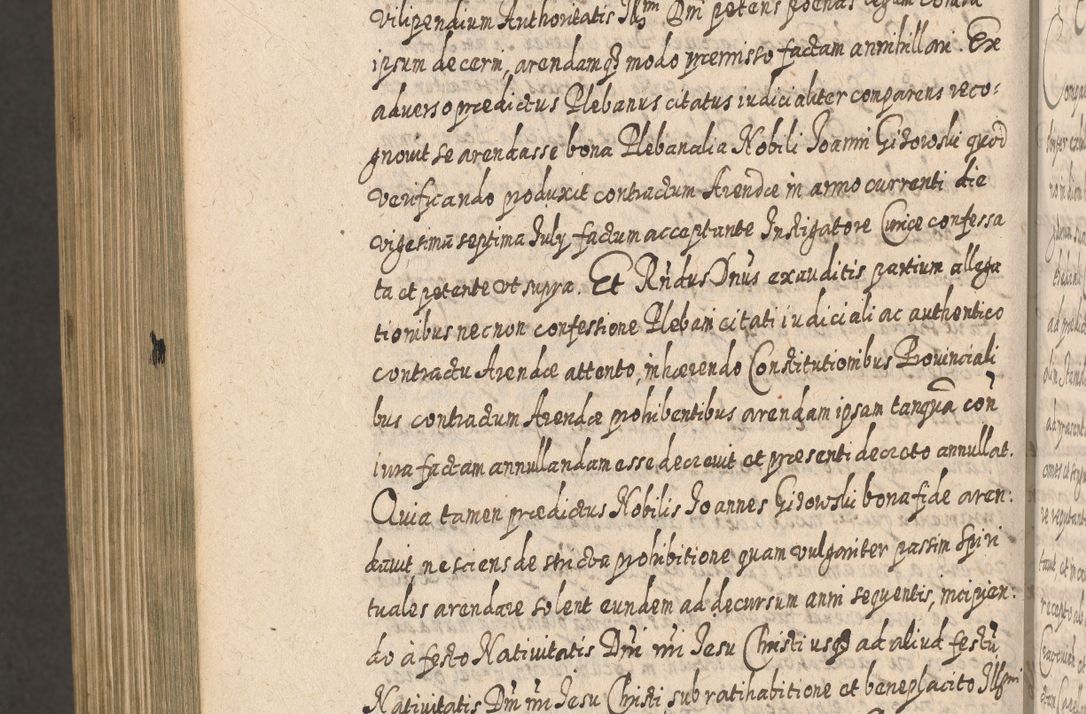 vilipendium Authoritatis Illmi Dni petens poenas legum contra
ipsum decerni, arendamq3 modo praemisso factam annihillari. Ex
adverso praedictus Plebanus citatus iudicialiter comparens reco=
gnovit se arendasse bona Plebanalia Nobili Joanni Gizowski quod
verificando produxit contractum Arendae in anno currenti die
vigesima septima July factum acceptante Instigatore Curiae confessa
ta et petente vt supra. Et Rndus Dnus exauditis partium allega
tionibus necnon confessione Plebani citati iudiciali ac authentico
contractu Arendae attento, inhaerendo Constitutionibus Provinciali
bus contractum Arendae prohibentibus arendam ipsam tanquã con
iura factam annullandam esse decrevit et praesenti decreto annullat.
Quia tamen praedictus Nobilis Joannes Gizowski bona fide aren:
davit nesciens de stricta prohibitione quam vulgariter passim Spiri
tuales arendare solent eundem ad decursum anni sequentis, incipien:
do à festo Nativitatis Dni nri Jesu Christi usq3 ad aliud festũ
Nativitatis Dni nri Jesu Christi sub ratihabitione et beneplacito Illmi